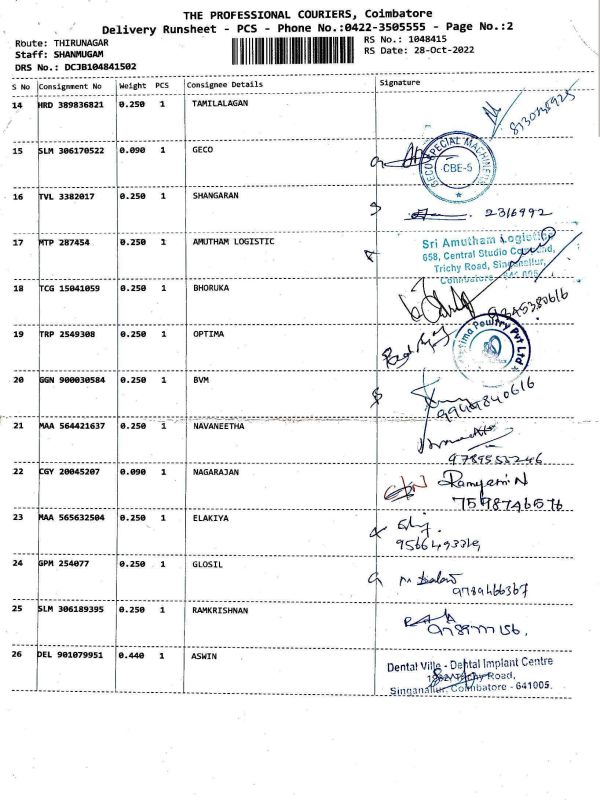 THE PROFESSIONAL COURIERS, Coimbatore
Delivery Runsheet - PCS - Phone No.:0422-3505555 - Page No.:2
Route: THIRUNAGAR
RS No.: 1048415
Staff: SHANMUGAM
RS Date: 28-Oct-2022
DRS No.: DCJB104841502
S No Consignment No Weight PCS Consignee Details Signature
14 HRD 389836821 0.250 1 TAMILALAGAN
15 SLM 306170522 0.090 1 GECO
GECO SPECIAL MACHINERY
CBE-5
16 TVL 3382017 0.250 1 SHANGARAN
2316992
17 MTP 287454 0.250 1 AMUTHAM LOGISTIC
Sri Amutham Logistic
658, Central Studio
Trichy Road, Singanallur,
Coimbatore - 641 005.
18 TCG 15041059 0.250 1 BHORUKA
9345380616
19 TRP 2549308 0.250 1 OPTIMA
Optima Poultry Pvt Ltd
20 GGN 900030584 0.250 1 BVM
21 MAA 564421637 0.250 1 NAVANEETHA
9789553246
22 CGY 20045207 0.090 1 NAGARAJAN
7598746576
23 MAA 565632504 0.250 1 ELAKIYA
24 GPM 254077 0.250 1 GLOSIL
9789466367
25 SLM 306189395 0.250 1 RAMKRISHNAN
26 DEL 901079951 0.440 1 ASWIN
Dental Ville - Dental Implant Centre
Trichy Road,
Singanallur, Coimbatore - 641005.